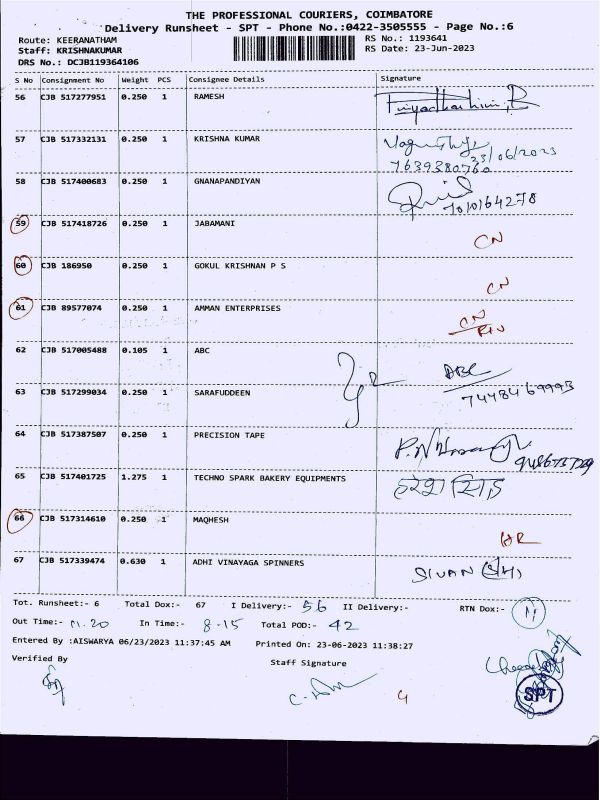 THE PROFESSIONAL COURIERS, COIMBATORE
Delivery Runsheet - SPT - Phone No.:0422-3505555 - Page No.:6
Route: KEERANATHAM RS No.: 1193641
Staff: KRISHNAKUMAR RS Date: 23-Jun-2023
DRS No.: DCJB119364106
S No Consignment No Weight PCS Consignee Details Signature
56 CJB 517277951 0.250 1 RAMESH
57 CJB 517332131 0.250 1 KRISHNA KUMAR
23/06/2023
7639380760
58 CJB 517400683 0.250 1 GNANAPANDIYAN
7010164278
59 CJB 517418726 0.250 1 JABAMANI
CN
60 CJB 186950 0.250 1 GOKUL KRISHNAN P S
CN
61 CJB 89577074 0.250 1 AMMAN ENTERPRISES
CN
62 CJB 517005488 0.105 1 ABC
ABC
63 CJB 517299034 0.250 1 SARAFUDDEEN
7448469993
64 CJB 517387507 0.250 1 PRECISION TAPE
65 CJB 517401725 1.275 1 TECHNO SPARK BAKERY EQUIPMENTS
हरेश सिंह
66 CJB 517314610 0.250 1 MAQHESH
HR
67 CJB 517339474 0.630 1 ADHI VINAYAGA SPINNERS
SIVAN
Tot. Runsheet:- 6 Total Dox:- 67 I Delivery:- 56 II Delivery:- RTN Dox:- 11
Out Time:- 11.20 In Time:- 8-15 Total POD:- 42
Entered By :AISWARYA 06/23/2023 11:37:45 AM Printed On: 23-06-2023 11:38:27
Verified By Staff Signature
SPT